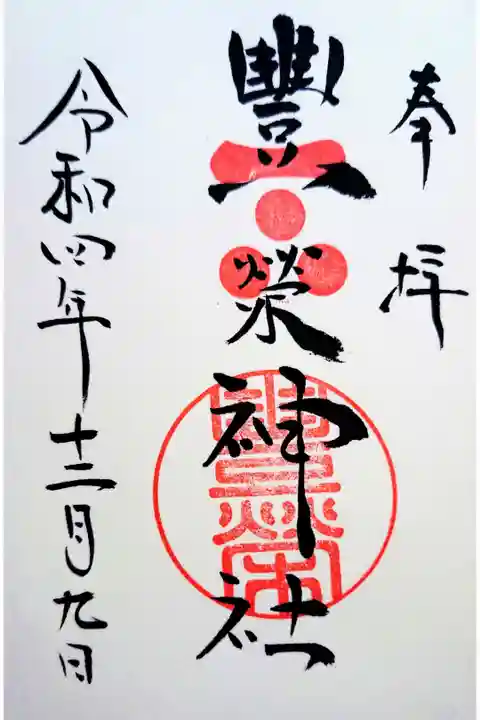 奉拝
豊榮神社
令和四年十二月九日